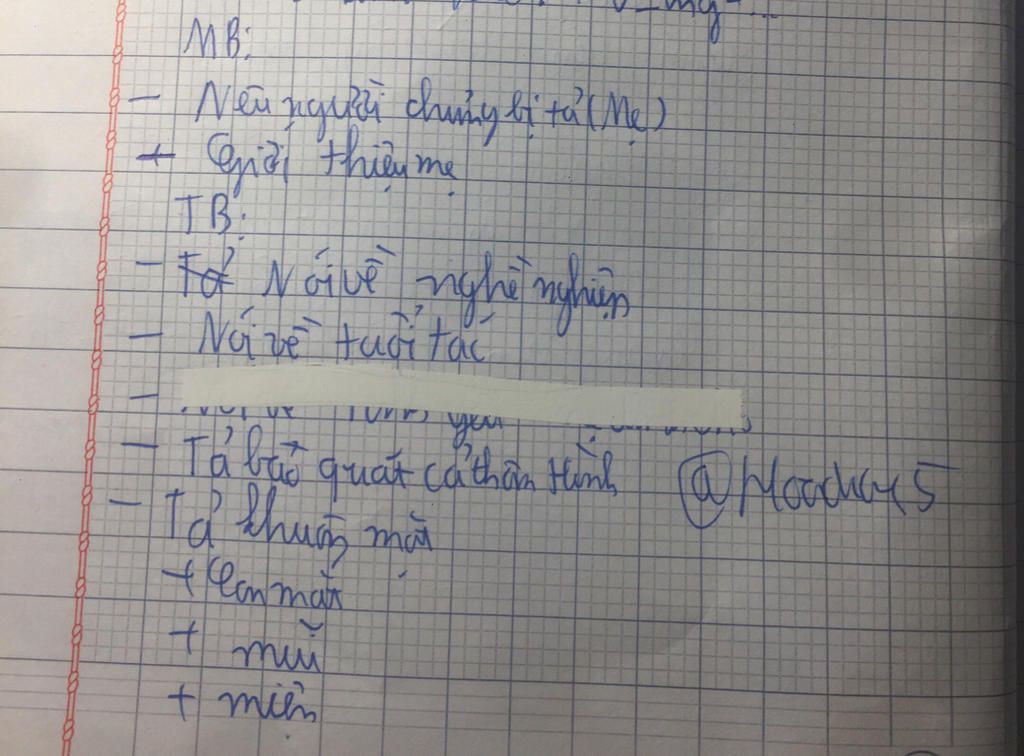 MB:
- Nêu người chúng bị tả (Mẹ)
+ Giới thiệu mẹ
TB:
- Tả Nói về nghề nghiệp
- Nói về tuổi tác
-
- Tả bao quát cả thân hình @Hoaduc45
- Tả khuôn mặt
+ Con mắt
+ mũi
+ miện